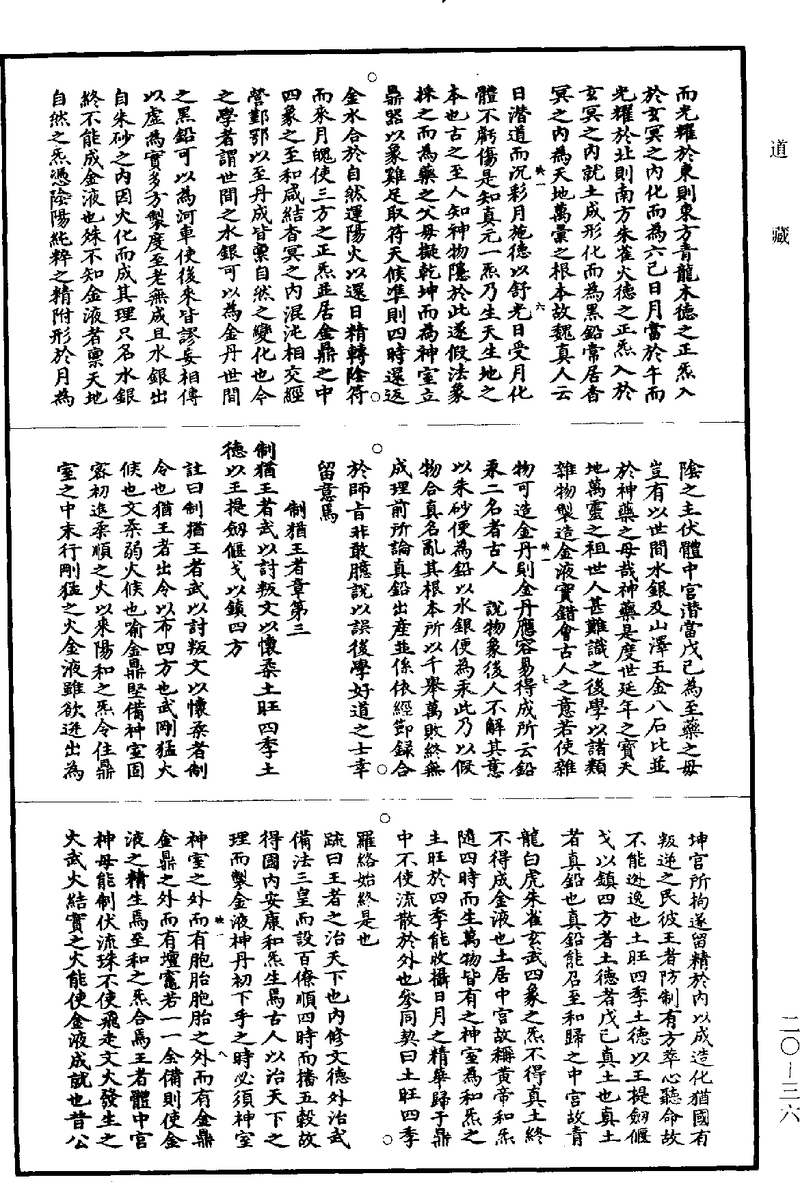 道藏
而光耀於東則東方青龍木德之正炁入
於玄冥之內化而為六己日月當於午而
光耀於北則南方朱雀火德之正炁入於
玄冥之內就土成形化而為黑鉛常居杳
冥之內為天地萬彙之根本故魏真人云
日潛道而沉彩月施德以舒光日受月化
體不虧傷是知真元一炁乃生天生地之
本也古之至人知神物隱於此遂假法象
採之而為藥之父母擬乾坤而為神室立
鼎器以象雞足取符天候準則四時還返
金水合於自然運陽火以還日精轉陰符
而來月魄使三方之正炁並居金鼎之中
四象之至和咸結杳冥之內混沌相交經
營鄞鄂以至丹成皆稟自然之變化也今
之學者謂世間之水銀可以為金丹世間
之黑鉛可以為河車使後來皆謬妄相傳
以虛為實多方製度至老無成且水銀出
自朱砂之內因火化而成其理只名水銀
終不能成金液也殊不知金液者稟天地
自然之炁憑陰陽純粹之精附形於月為
陰之主伏體中宮潛當戊己為至藥之母
豈有以世間水銀及山澤五金八石比並
於神藥之母哉神藥是度世延年之寶天
地萬靈之祖世人甚難識之後學以諸類
雜物製造金液實錯會古人之意若使雜
物可造金丹則金丹應容易得成所云鉛
汞二名者古人 說物象後人不解其意
以朱砂便為鉛以水銀便為汞此乃以假
物合真名亂其根本所以千舉萬敗終無
成理前所論真鉛出產並係依經節錄合
於師旨非敢臆說以誤後學好道之士幸
留意焉
制猶王者章第三
制猶王者武以討叛文以懷柔土旺四季土
德以王提劍偃戈以鎮四方
註曰制猶王者武以討叛文以懷柔者制
令也猶王者出令以布四方也武剛猛大
候也文柔弱火候也喻金鼎堅備神室固
密初進柔順之火以來陽和之炁令住鼎
室之中末行剛猛之火金液雖欲迸出為
坤宮所拘遂留精於內以成造化猶國有
叛逆之民彼王者防制有方萃心聽命故
不能逊逸也土旺四季土德以王提劍偃
戈以鎮四方者土德者戊己真土也真土
者真鉛也真鉛能召至和歸之中宮故青
龍白虎朱雀玄武四象之炁不得真土終
不得成金液也土居中宮故稱黃帝和炁
隨四時而生萬物皆有之神室為和炁之
土旺於四季能收攝日月之精華歸于鼎
中不使流散於外也參同契曰土旺四季
羅絡始終是也
疏曰王者之治天下也內修文德外治武
備法三皇而設百僚順四時而播五穀故
得國內安康和炁生焉古人以治天下之
理而製金液神丹初下手之時必須神室
神室之外而有胞胎胞胎之外而有金鼎
金鼎之外而有壇竈若一一全備則使金
液之精生焉至和之炁合焉王者體中宮
神母能制伏流珠不使飛走文火發生之
火武火結實之火能使金液成就也昔公
二〇-三六